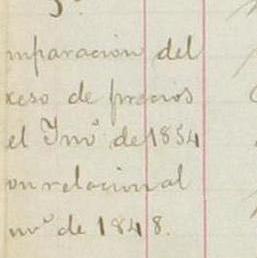 5º
mparacion del
xeso de precios
el Inv.º de 1854
on relacion al
nv.º de 1848.